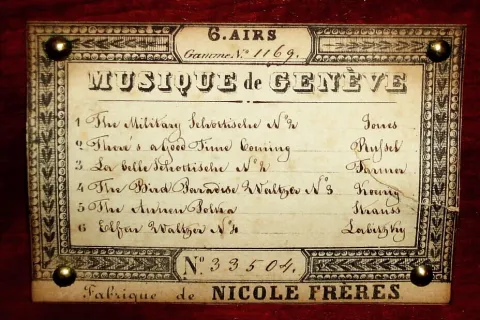 6. AIRS
Gamme N.º 1169.
MUSIQUE de GENÈVE
1 The Military Schottische Nº 2 Jones
2 There's a Good Time Coming Russel
3 La belle Schottische Nº 2 Farmer
4 The Bird Paradise Waltzer Nº 3 Koenig
5 The Annen Polka Strauss
6 Elfen Waltzer Nº 4 Labitzky
Nº 33504.
Fabrique de NICOLE FRÈRES